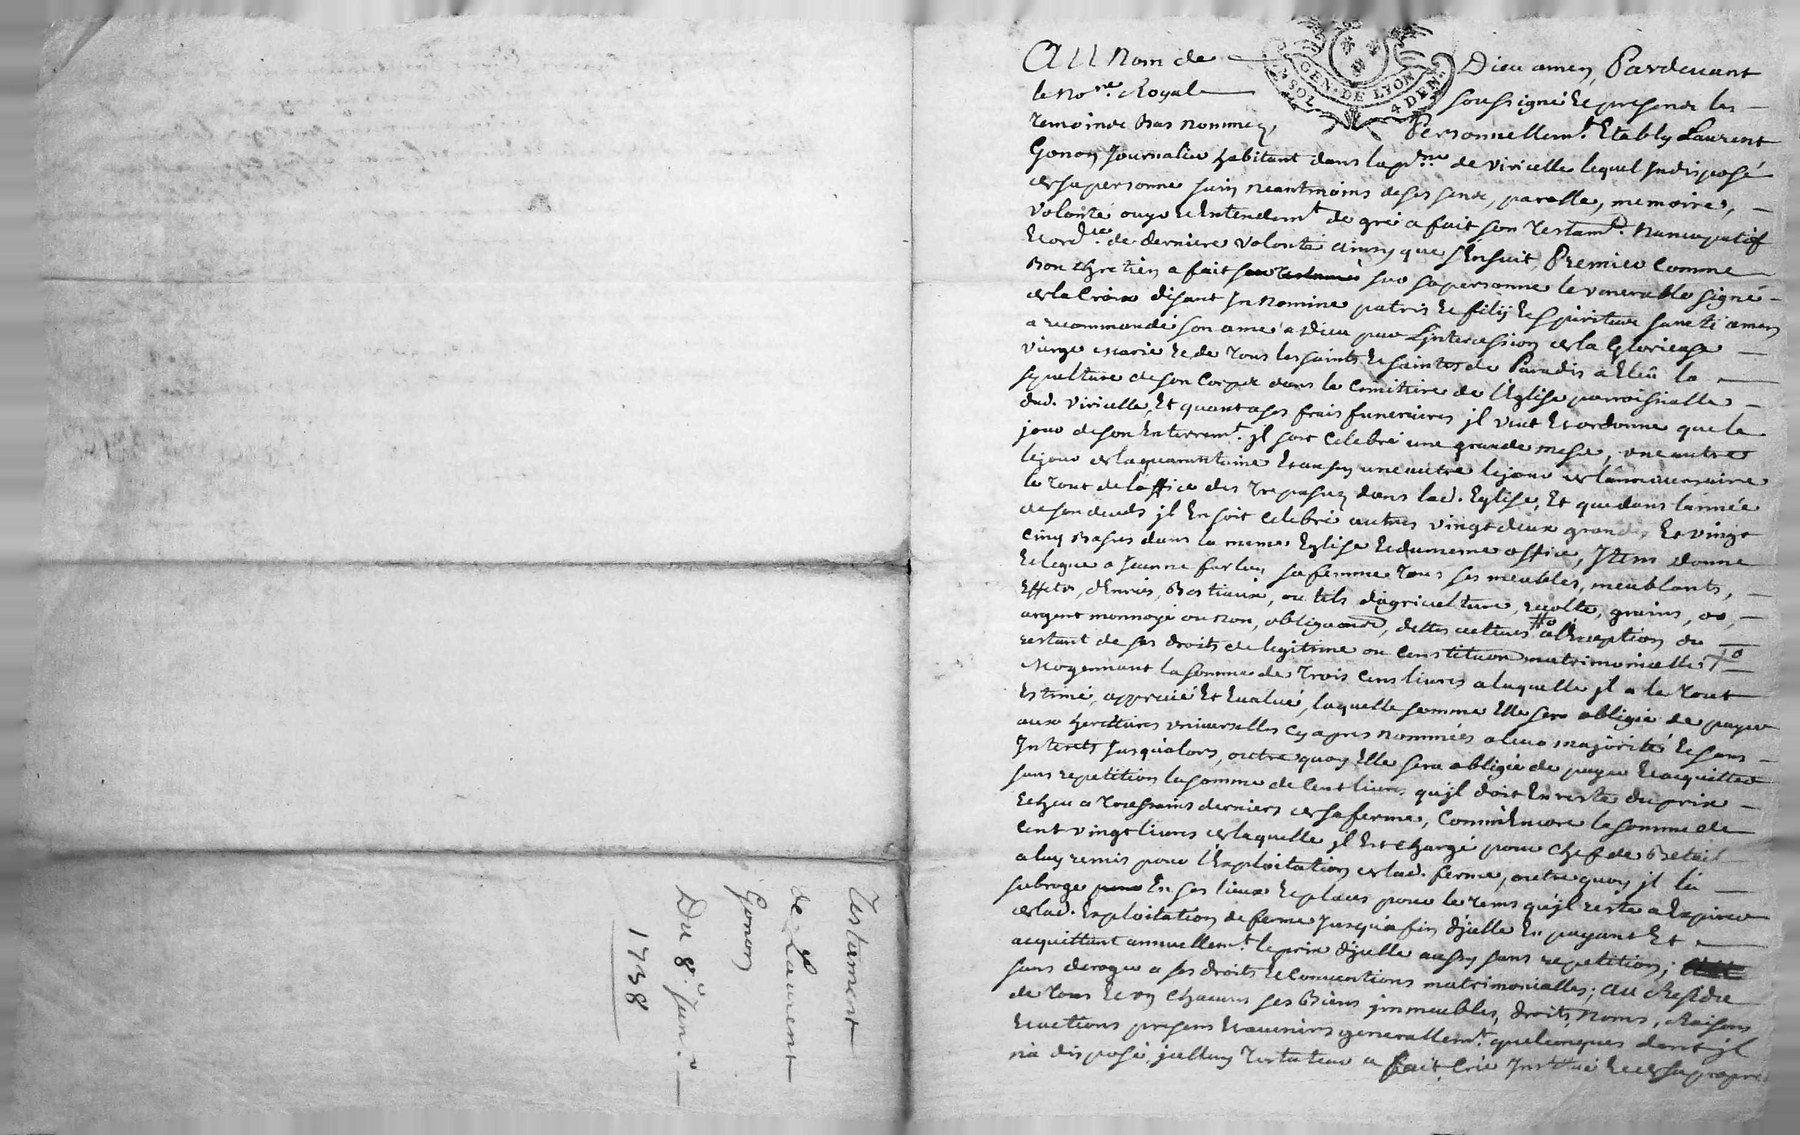 Testament
de Laurent
Gonon
Du 8.e Jun.r
1738
GEN. DE LYON
2. SOL 4 DEN.
Au Nom de Dieu amen, Pardevant
le no.re Royal soussigné et presens les
temoins bas nommez, Personnellem.t Etably Laurent
Gonon Journalier habitant dans la p.sse de viricelle lequel Indisposé
de sa personne sain neantmoins de ses sens, parolle, memoire,
volonté ouye et Entendem.t de gré a fait son testam.t nuncupatif
et ord.re de derniere volonté ainsy que s'Ensuit, Premier Comme
Bon chretien a fait sur sa personne le venerable signe
de la Croix disant In nomine patris et filij et spiritus sancti amen
a recommandé son ame a Dieu par L'intercession de la Glorieuse
vierge marie et de tous les saints et saintes de Paradis a Eleu la
sepulture de son Corps dans le Cimitiere de l'Eglise parroissialle
dud. viricelle, Et quant a ses frais funeraires jl veut Et ordonne que le
jour de son Enterrem.t jl soit Celebré une grande messe, une autre
le jour de la quarantaine Et aussy une autre le jour de l'anniversaire
le tout de l'office des trepassez dans lad. Eglise, Et que dans l'année
de son deuds jl En soit Celebré autres vingt deux grandes Et vingt
Cinq Basses dans la meme Eglise et du meme office, Item donne
et legue a Jeanne sa femme tous ses meubles, meublants,
Effets, d'Enrées, Bestiaux, outils d'agriculture, recolte, grains, or,
argent monnoyé ou non, dettes actives a l'Exception du
restant de ses droits de legitime ou Constitution matrimonialle
Moyennant la somme de trois Cens livres a laquelle jl a le tout
Estimé, apprecié Et Evalué, laquelle somme Elle sera obligée de payer
aux heritieres universelles Cy apres nommées a leur majorité Et sans
Interets jusqu'alors, outre quoy Elle sera obligée de payer et acquitter
sans repetition la somme de Cent livres qu'jl doit En reste du prix
Echeu a toussains derniers de sa ferme, Comm'Encore la somme de
Cent vingt livres de laquelle jl Est Chargé pour Chef de Betail
a luy remis pour l'Exploitation de lad. ferme, outre quoy jl la
subroge En ses lieux et places pour le tems qu'jl reste a Expirer
de lad. Exploitation de ferme jusqu'a fin d'jcelle En payant Et
acquittant annuellem.t le prix d'jcelle aussy sans repetition;
sans deroger a ses droits et Conventions matrimonialles; Au Residu
de tous et un Chacuns ses Biens jmmeubles, droits, noms, Raisons
et actions presens et avenirs generallem.t quelconques dont jl
n'a disposé, jcelluy testateur a fait, Créé Institué et de sa propre